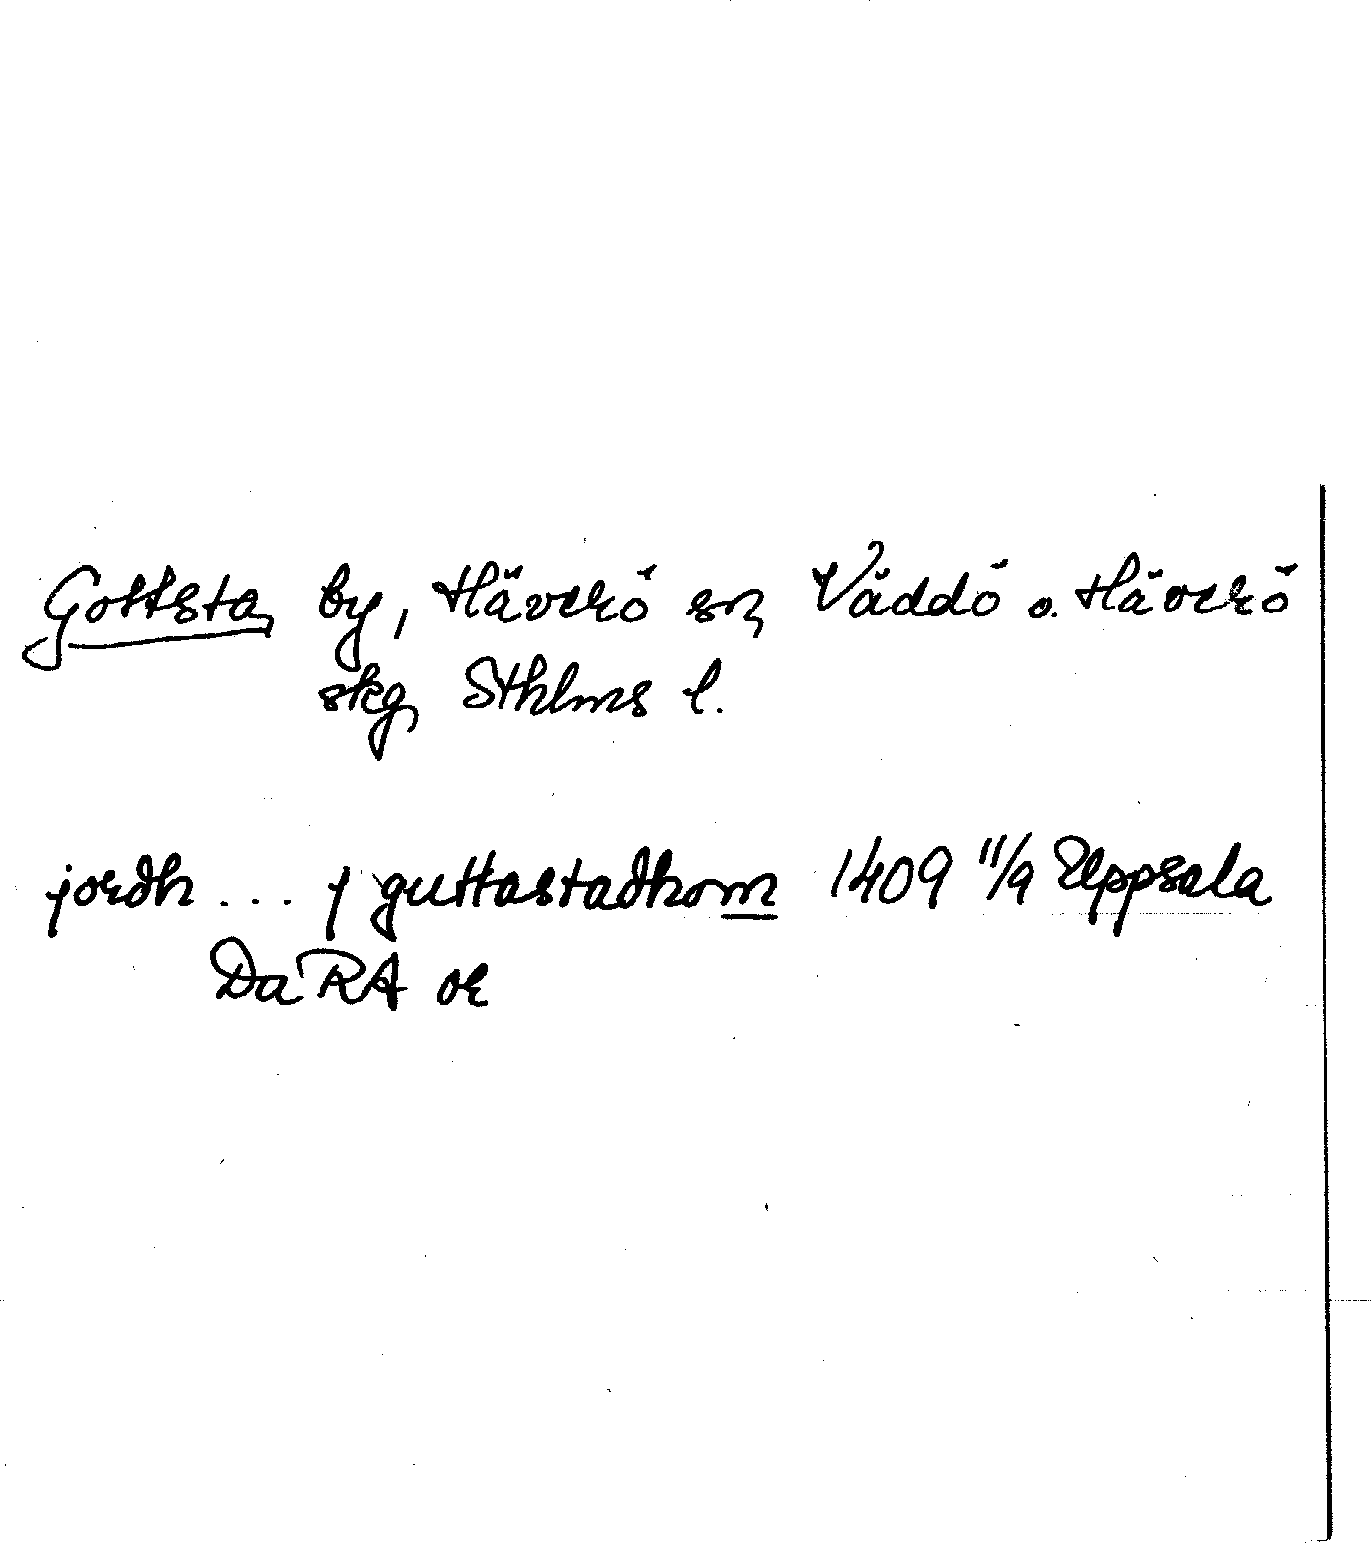 Gottsta by, Häverö sn, Väddö o. Häverö
skg, Sthlms l.
jordh ... j guttastadhom 1409 11/9 Uppsala
Da RA or